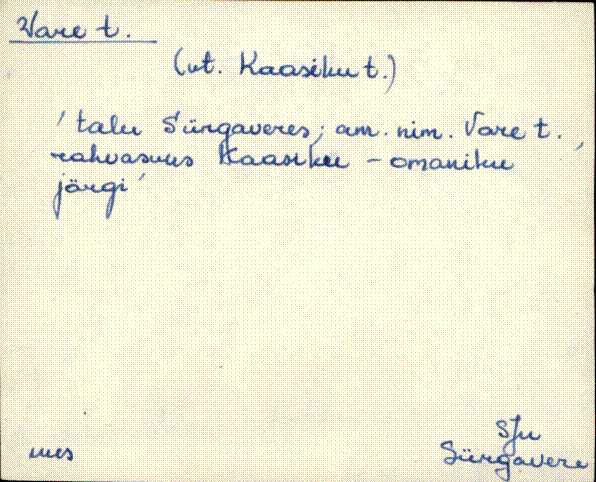 Vare t.
(vt. Kaasiku t.)
'talu Sürgaveres; am. nim. Vare t.,
rahvasuus Kaasiku - omaniku
järgi'
SJn
mes
Sürgavere